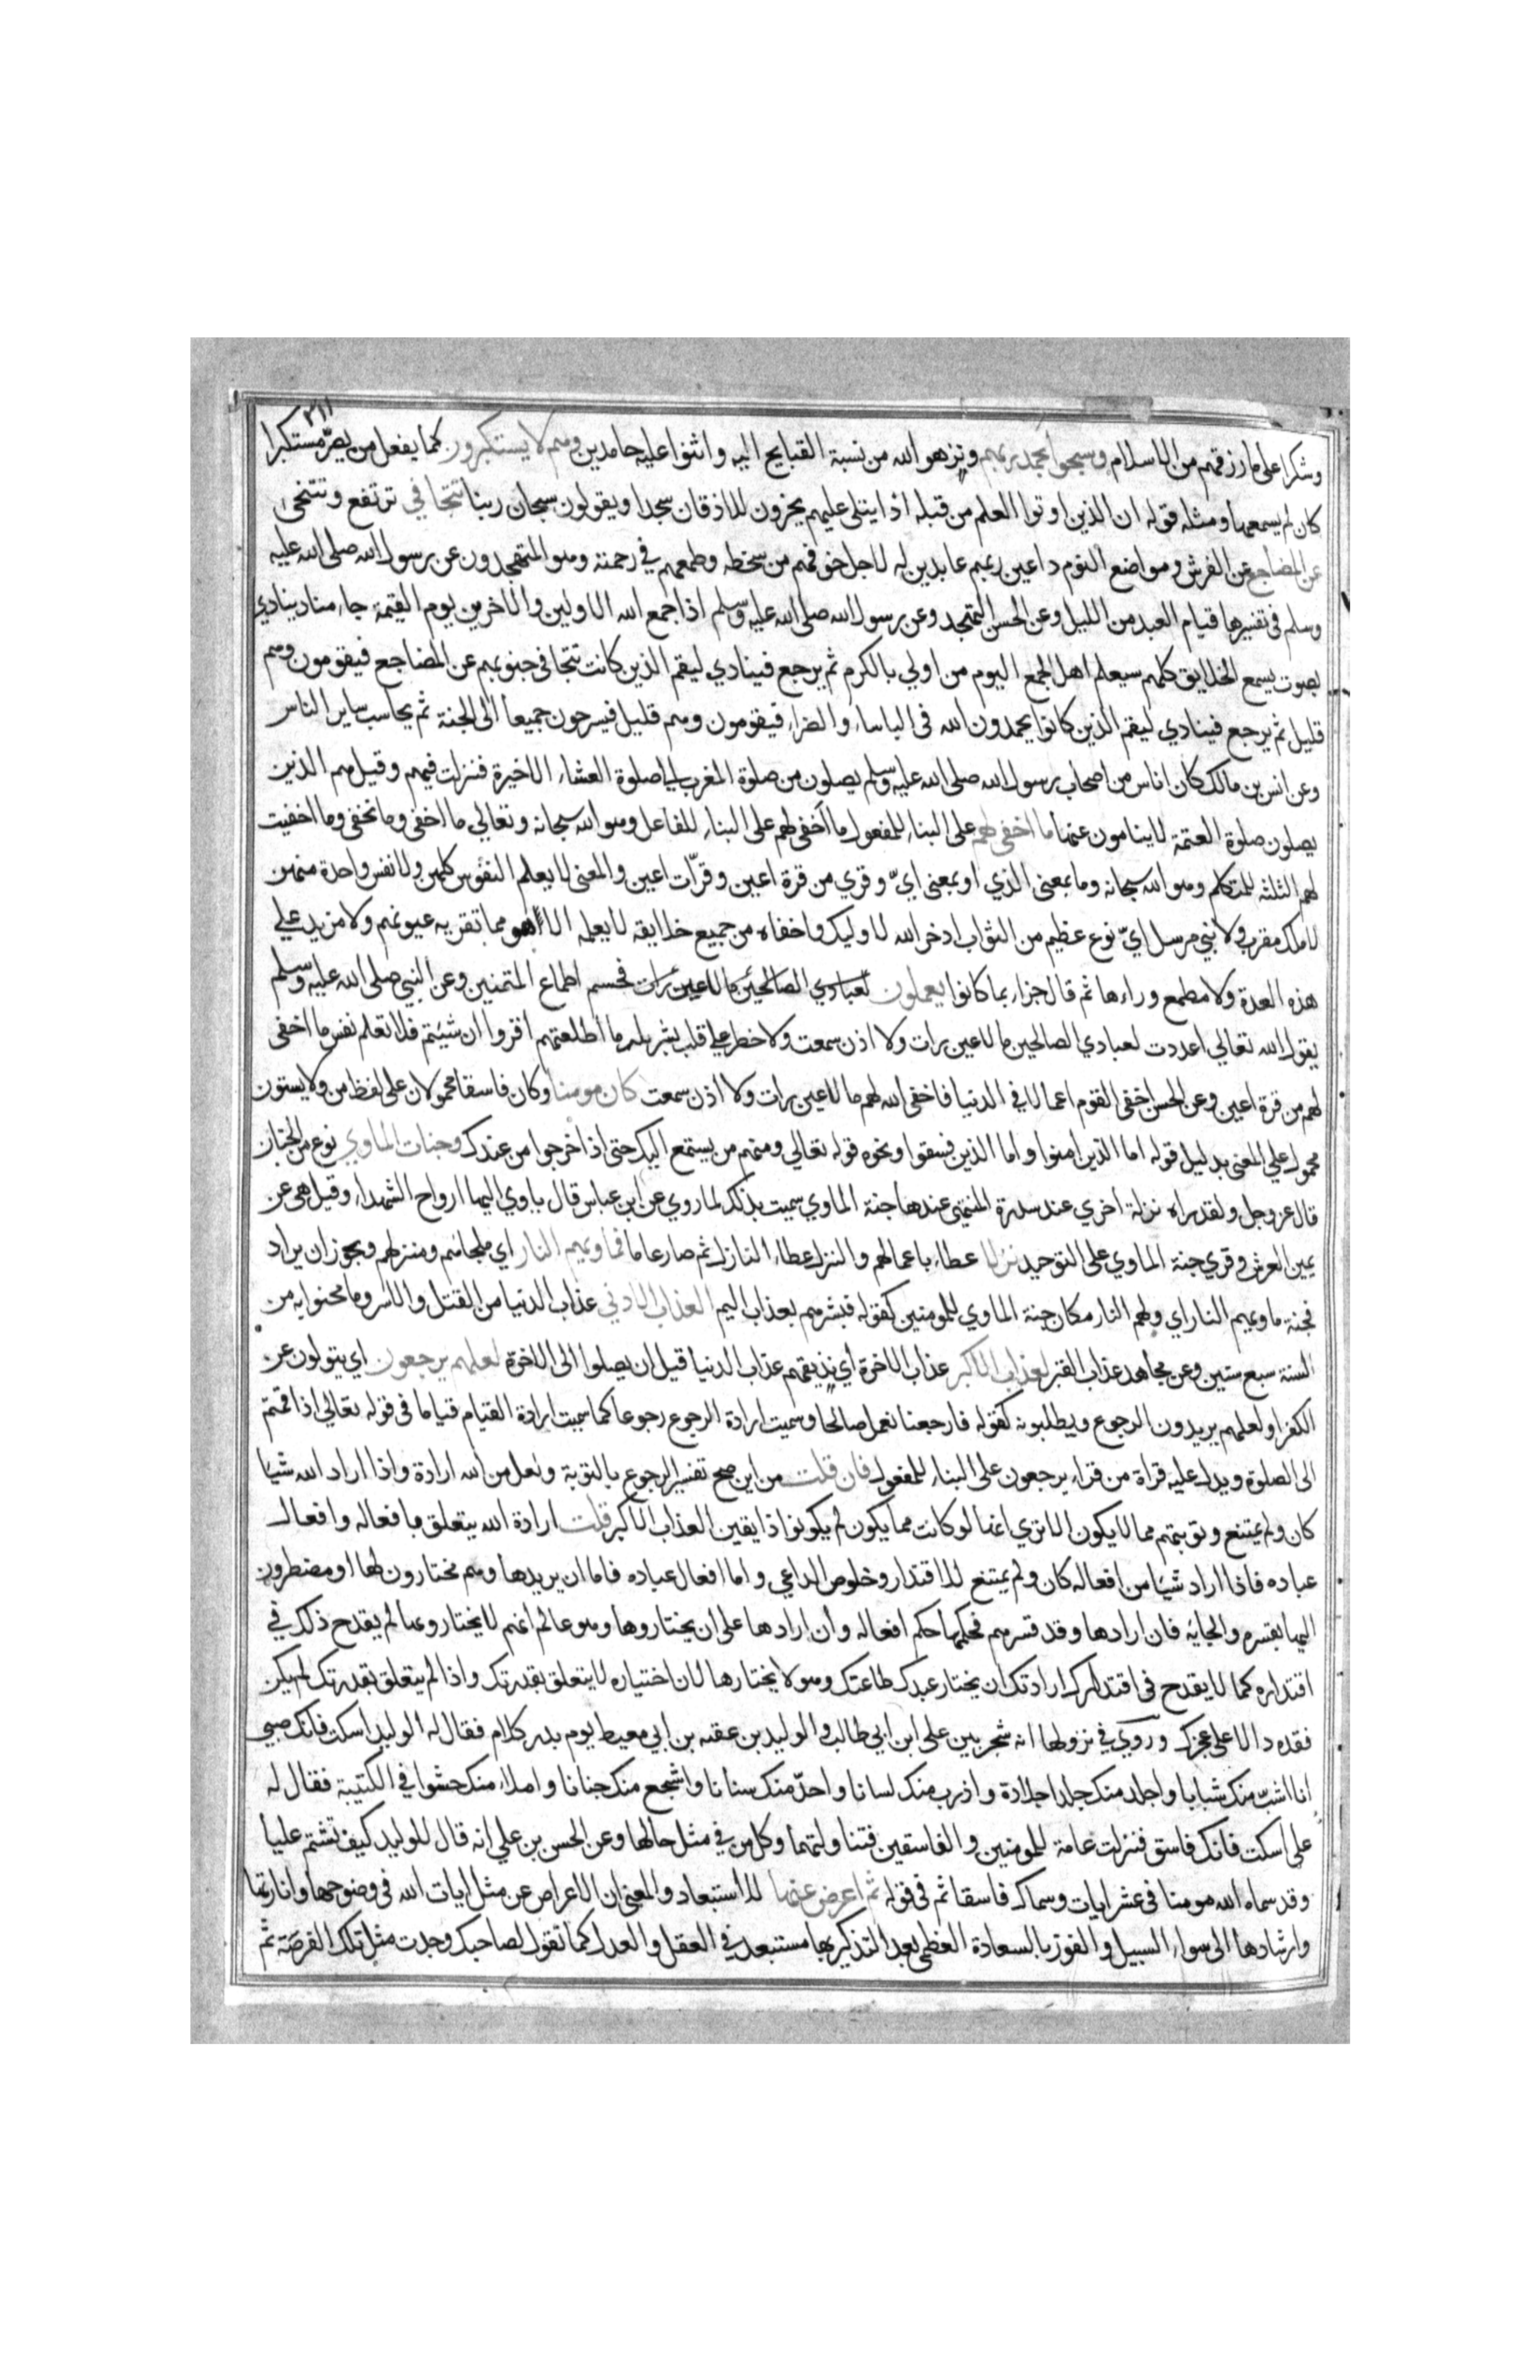 ٣١١
وشكرا على ما رزقهم من الاسلام وسبحوا بحمد ربهم ونزهوا الله من نسبة القبايح اليه واثنوا عليه حامدين وهم لا يستكبرون كما يفعل من يصرّ مستكبرا
كان لم يسمعها ومثله قوله ان الذين اوتوا العلم من قبله اذا يتلى عليهم يخرون للاذقان سجدا ويقولون سبحان ربنا تتجافي ترتفع وتتنحى
عن المضاجع عن الفرش ومواضع النوم داعين ربهم عابدين له لاجل خوفهم من سخطه وطمعهم في رحمته وهو المتهجدون عن رسول الله صلى الله عليه
وسلم في تفسيرها قيام العبد من الليل وعن الحسن التهجد وعن رسول الله صلى الله عليه وسلم اذا جمع الله الاولين والاخرين يوم القيمة جاء مناد ينادي
بصوت يسمع الخلايق كلهم سيعلم اهل الجمع اليوم من اولي بالكرم ثم يرجع فينادي ليقم الذين كانت تتجافي جنوبهم عن المضاجع فيقومون وهم
قليل ثم يرجع فينادي ليقم الذين كانوا يحمدون الله في الباساء والضراء فيقومون وهم قليل فيسرحون جميعا الى الجنة ثم يحاسب ساير الناس
وعن انس بن مالك كان اناس من اصحاب رسول الله صلى الله عليه وسلم يصلون من صلوة المغرب الي صلوة العشاء الاخيرة فنزلت فيهم وقيل هم الذين
يصلون صلوة العتمة لا ينامون عنها ما اخفي لهم على البناء للمفعول ما اخفى لهم على البناء للفاعل وهو الله سبحانه وتعالي ما اخفي وما نخفي وما اخفيت
لهم الثلثه للمتكلم وهو الله سبحانه وما بمعنى الذي او بمعنى ايّ وقري من قرة اعين وقرّات اعين والمعنى لا يعلم النفوس كلهن ولا نفس واحدة منهن
لا ملك مقرب ولا نبي مرسل ايّ نوع عظيم من الثواب ادخر الله لاوليك واخفاه من جميع خلايقه لا يعلمه الا هو مما تقر به عيونهم ولا مزيد علي
هذه العدة ولا مطمع وراءها ثم قال جزاء بما كانوا يعملون لعبادي الصالحين ما لا عين رات فحسم اطماع المتمنين وعن النبي صلى الله عليه وسلم
يقول الله تعالي اعددت لعبادي الصالحين ما لا عين رات ولا اذن سمعت ولا خطر علي قلب بشر بله ما اطلعتهم اقروا ان شيتم فلا تعلم نفس ما اخفي
لهم من قرة اعين وعن الحسن اخفى القوم اعمالا في الدنيا فاخفى الله لهم ما لا عين رات ولا اذن سمعت كان مومنا وكان فاسقا محمولان على لفظ من ولا يستون
محمول علي المعنى بدليل قوله اما الذين امنوا واما الذين فسقوا ونحوه قوله تعالي ومنهم من يستمع اليك حتى اذا خرجوا من عندك وجنات الماوي نوع من الجنان
قال عز وجل ولقد راه نزلة اخري عند سدرة المنتهي عندها جنة الماوي سميت بذلك لما روي عن ابن عباس قال ياوي اليها ارواح الشهداء وقيل هي عن
يمين العرش وقري جنة الماوي على التوحيد نزلا عطاء باعمالهم والنزل عطاء النازل ثم صار عاما فماويهم النار اي ملجاهم ومنزلهم ويجوز ان يراد
فجنة ماويهم النار اي ولهم النار مكان جنة الماوي للمومنين كقوله فبشرهم بعذاب اليم العذاب الادني عذاب الدنيا من القتل والاسر وما محنوا به من
السنة سبع سنين وعن مجاهد عذاب القبر العذاب الاكبر عذاب الاخرة اي نذيقهم عذاب الدنيا قبل ان يصلوا الى الاخرة لعلهم يرجعون اي يتولون عن
الكفر او لعلهم يريدون الرجوع ويطلبونه كقوله فارجعنا نعمل صالحا وسميت ارادة الرجوع رجوعا كما سميت ارادة القيام قياما في قوله تعالي اذا قمتم
الى الصلوة ويدل عليه قراة من قراء يرجعون على البناء للمفعول فان قلت من اين صح تفسير الرجوع بالتوبة ولعل من الله ارادة واذا اراد الله شيا
كان ولم يمتنع وتوبتهم مما لا يكون الا تري انها لو كانت مما يكون لم يكونوا ذايقين العذاب الاكبر قلت ارادة الله يتعلق بافعاله وافعال
عباده فاذا اراد شيا من افعاله كان ولم يمتنع للاقتدار وخلوص الداعي واما افعال عباده فاما ان يريدها وهم مختارون لها او مضطرون
اليها بقسره والجايه فان ارادها وقد قسرهم فحكمها حكم افعاله وان ارادها على ان يختاروها وهو عالم انهم لا يختارونها لم يقدح ذلك في
اقتداره كما لا يقدح في اقتدارك ارادتك ان يختار عبدك طاعتك وهو لا يختارها لان اختياره لا يتعلق بقدرتك واذا لم يتعلق بقدرتك لم يكن
فقده دالا على عجزك وروي في نزولها انه شجر بين على ابن ابي طالب والوليد بن عقبه بن ابي معيط يوم بدر كلام فقال له الوليد اسكت فانك صبي
انا اشبّ منك شبابا واجلد منك جلدا جلادة واذرب منك لسانا واحدّ منك سنانا واشجع منك جنانا واملاء منك حشوا في الكتيبة فقال له
على اسكت فانك فاسق فنزلت عامة للمومنين والفاسقين فتناولتهما وكل من في مثل حالها وعن الحسن بن علي انه قال للوليد كيف تشتم عليا
وقد سماه الله مومنا في عشر ايات وسماك فاسقا ثم في قوله ثم اعرض عنها للاستبعاد والمعنى ان الاعراض عن مثل ايات الله في وضوحها وانارتها
وارشادها الى سواء السبيل والفوز بالسعادة العظمي بعد التذكير بها مستبعد في العقل والعدل كما تقول لصاحبك وجدت مثل تلك الفرصة ثم